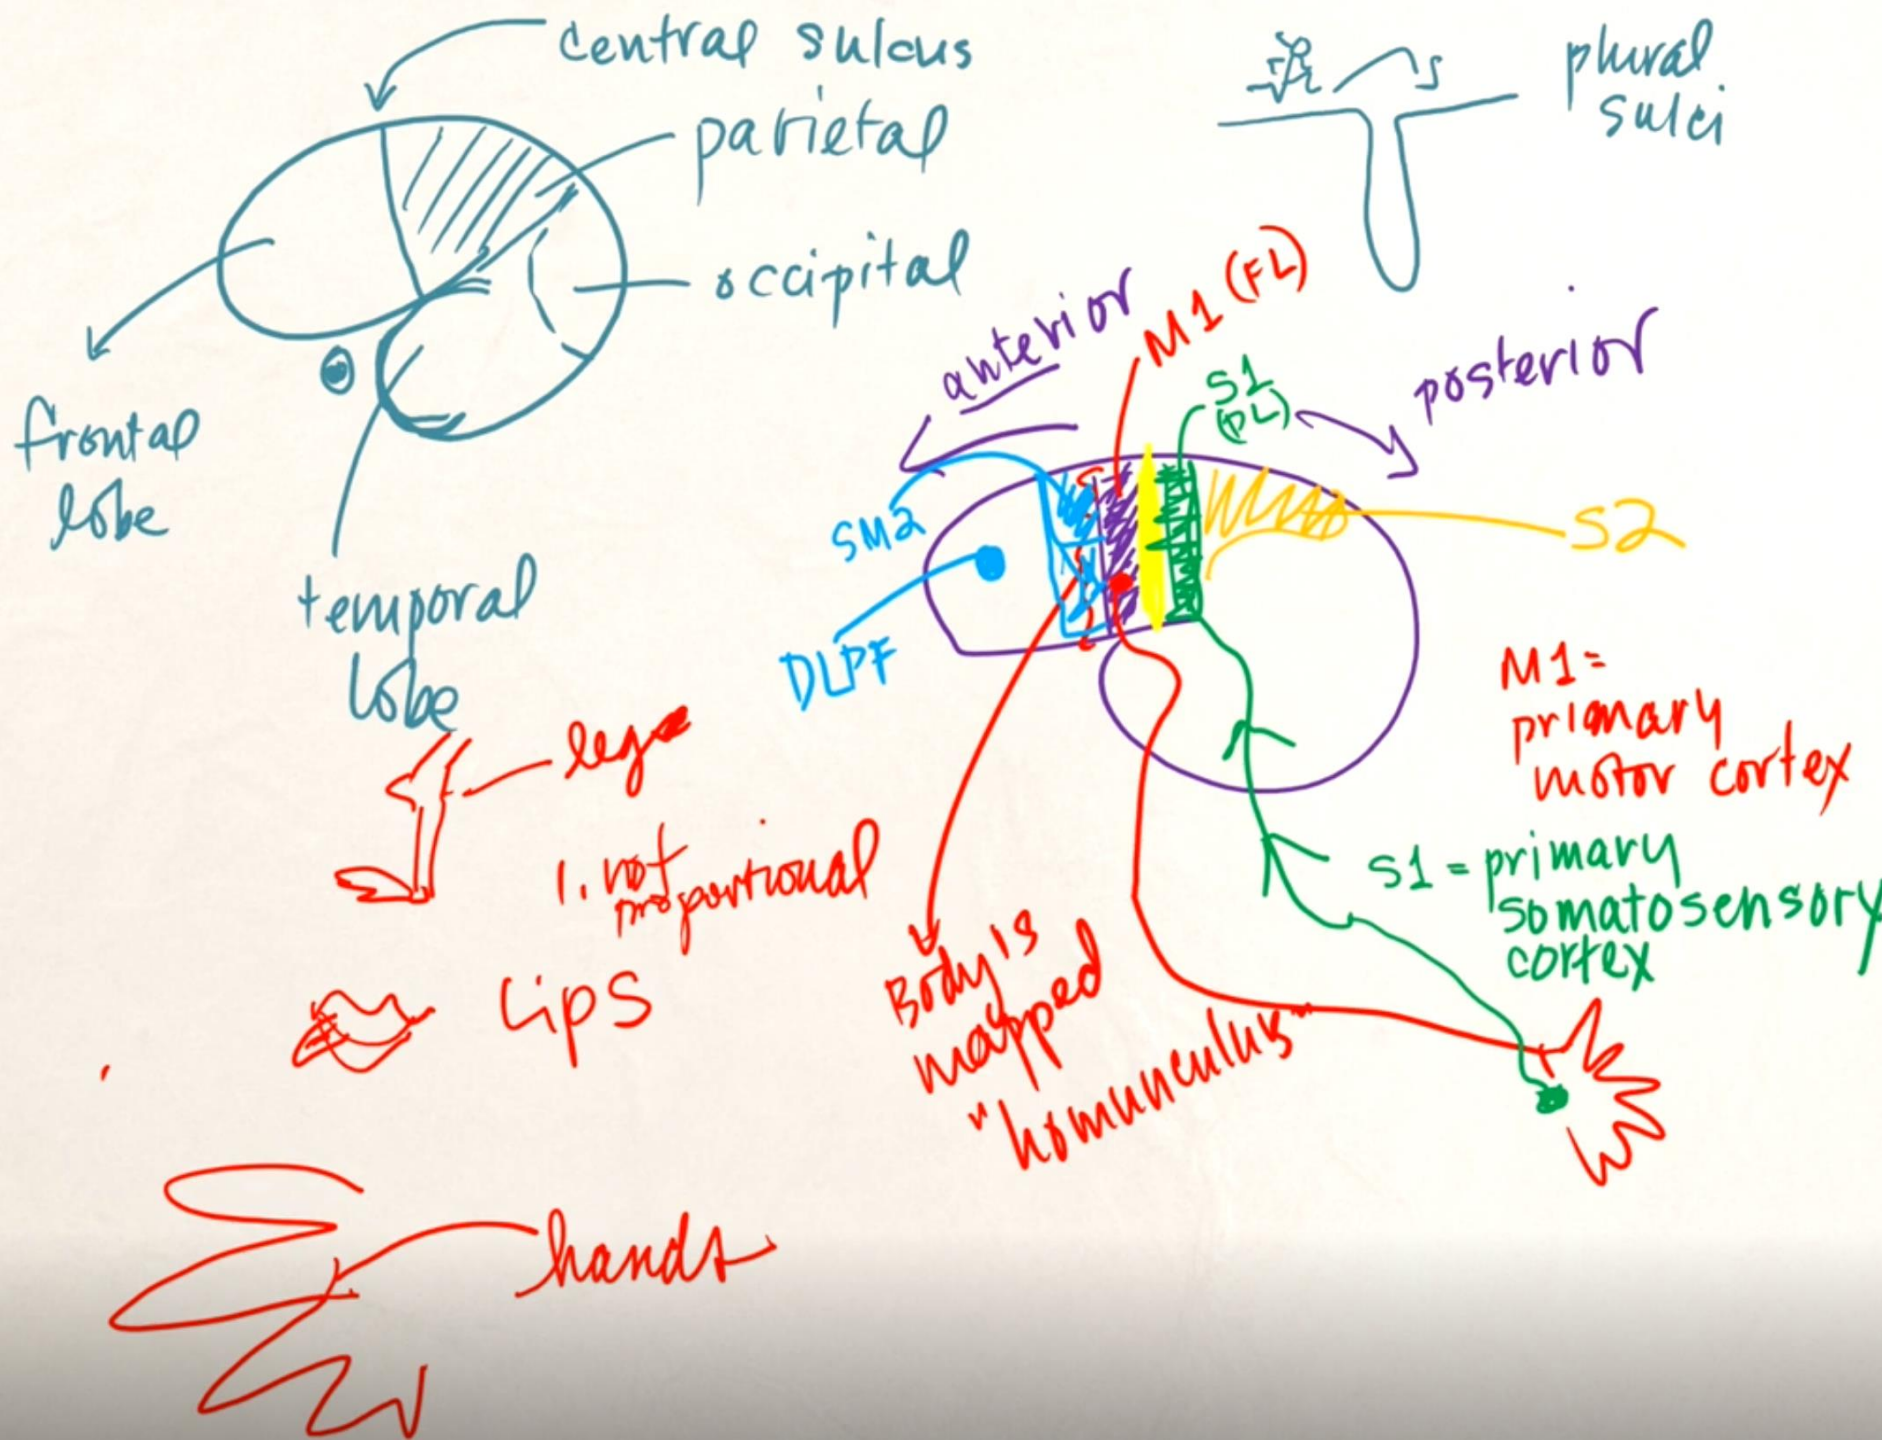 central sulcus
parietal
occipital
frontal
lobe
temporal
lobe
plural
sulci
anterior
M1 (FL)
S1
(PL)
posterior
SM2
S2
DLPF
M1=
primary
motor cortex
S1 = primary
somatosensory
cortex
leg
1. not
proportional
Lips
hands
Body is
mapped
"homunculus"